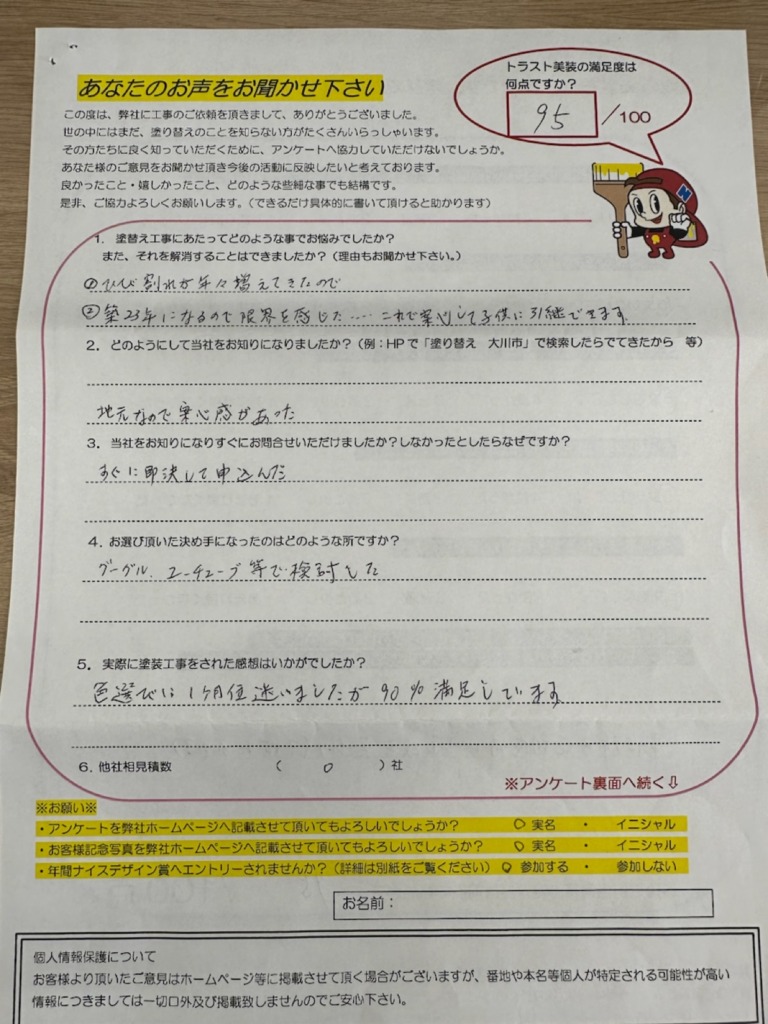 あなたのお声をお聞かせ下さい
トラスト美装の満足度は
何点ですか？
95 /100
この度は、弊社に工事のご依頼を頂きまして、ありがとうございました。
世の中にはまだ、塗り替えのことを知らない方がたくさんいらっしゃいます。
その方たちに良く知っていただくために、アンケートへ協力していただけないでしょうか。
あなた様のご意見をお聞かせ頂き今後の活動に反映したいと考えております。
良かったこと・嬉しかったこと、どのような些細な事でも結構です。
是非、ご協力よろしくお願いします。（できるだけ具体的に書いて頂けると助かります）
N
1．塗替え工事にあたってどのような事でお悩みでしたか？
また、それを解消することはできましたか？（理由もお聞かせ下さい。）
①ひび割れが年々増えてきたので
②築23年になるので限界を感じた…… これで安心して子供に引継できます
2．どのようにして当社をお知りになりましたか？（例：HPで「塗り替え　大川市」で検索したらでてきたから　等）
地元なので安心感があった
3．当社をお知りになりすぐにお問合せいただけましたか？しなかったとしたらなぜですか？
すぐに即決して申込んだ
4．お選び頂いた決め手になったのはどのような所ですか？
グーグル、ユーチューブ等で検討した
5．実際に塗装工事をされた感想はいかがでしたか？
色選びは1ヶ月位迷いましたが90％満足しています
6．他社相見積数　（　0　）社
※アンケート裏面へ続く⇩
※お願い※
・アンケートを弊社ホームページへ記載させて頂いてもよろしいでしょうか？　○ 実名　・　イニシャル
・お客様記念写真を弊社ホームページへ記載させて頂いてもよろしいでしょうか？　○ 実名　・　イニシャル
・年間ナイスデザイン賞へエントリーされませんか？（詳細は別紙をご覧ください）　○ 参加する　・　参加しない
お名前：
個人情報保護について
お客様より頂いたご意見はホームページ等に掲載させて頂く場合がございますが、番地や本名等個人が特定される可能性が高い
情報につきましては一切口外及び掲載致しませんのでご安心下さい。